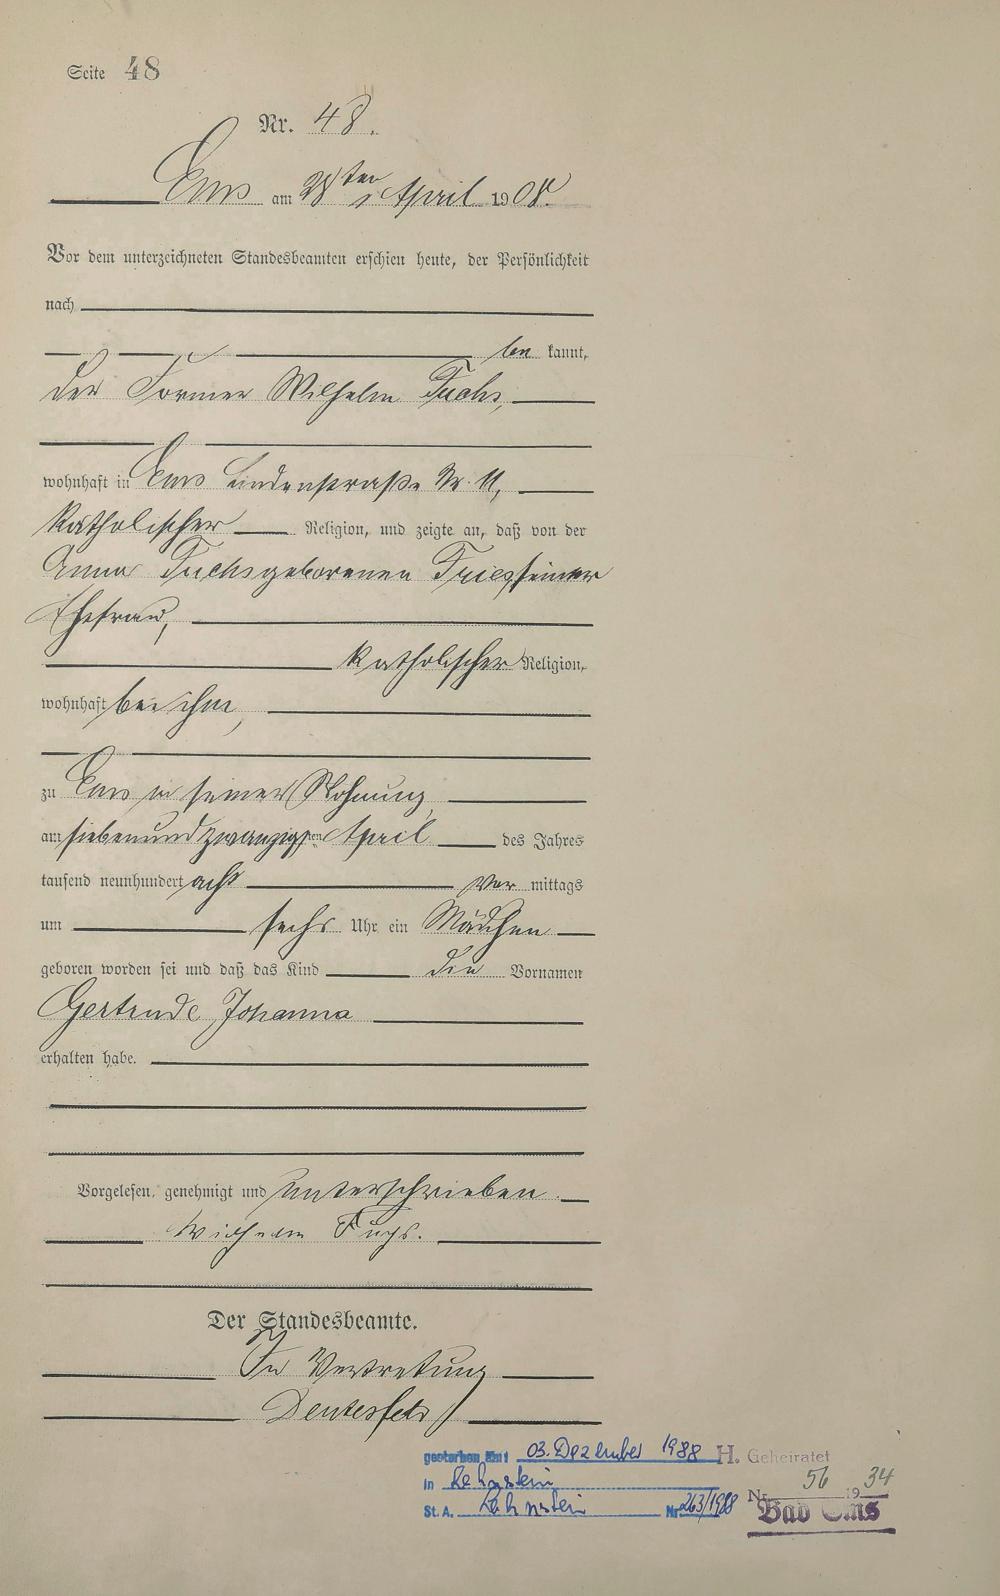 Seite 48
Nr. 48.
Ems am 28ten April 1908.
Vor dem unterzeichneten Standesbeamten erschien heute, der Persönlichkeit
nach
be kannt,
der Former Wilhelm Fuchs,
wohnhaft in Ems Lindenstraße Nr. 11,
katholischer Religion, und zeigte an, daß von der
Anna Fuchs geborenen Fries, seiner
Ehefrau,
katholischer Religion,
wohnhaft bei ihm,
zu Ems in seiner Wohnung
am siebenundzwanzigsten April des Jahres
tausend neunhundert acht Vor mittags
um sechs Uhr ein Mädchen
geboren worden sei und daß das Kind die Vornamen
Gertrude Johanna
erhalten habe.
Vorgelesen, genehmigt und unterschrieben.
Wilhelm Fuchs.
Der Standesbeamte.
In Vertretung
gestorben am: 03. Dezember 1988
in Lahnstein
St. A. Lahnstein Nr. 263/1988
H. Geheiratet
Nr. 56 1934
Bad Ems